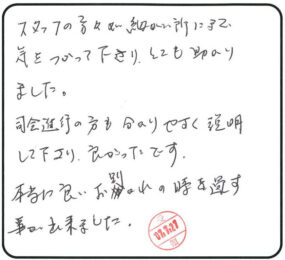 スタッフの方々が細かい所にまで
気をつかって下さり、とても助かり
ました。
司会進行の方も分かりやすく説明
して下さり、良かったです。
本当に良いお別れの時を過す
事が出来ました。